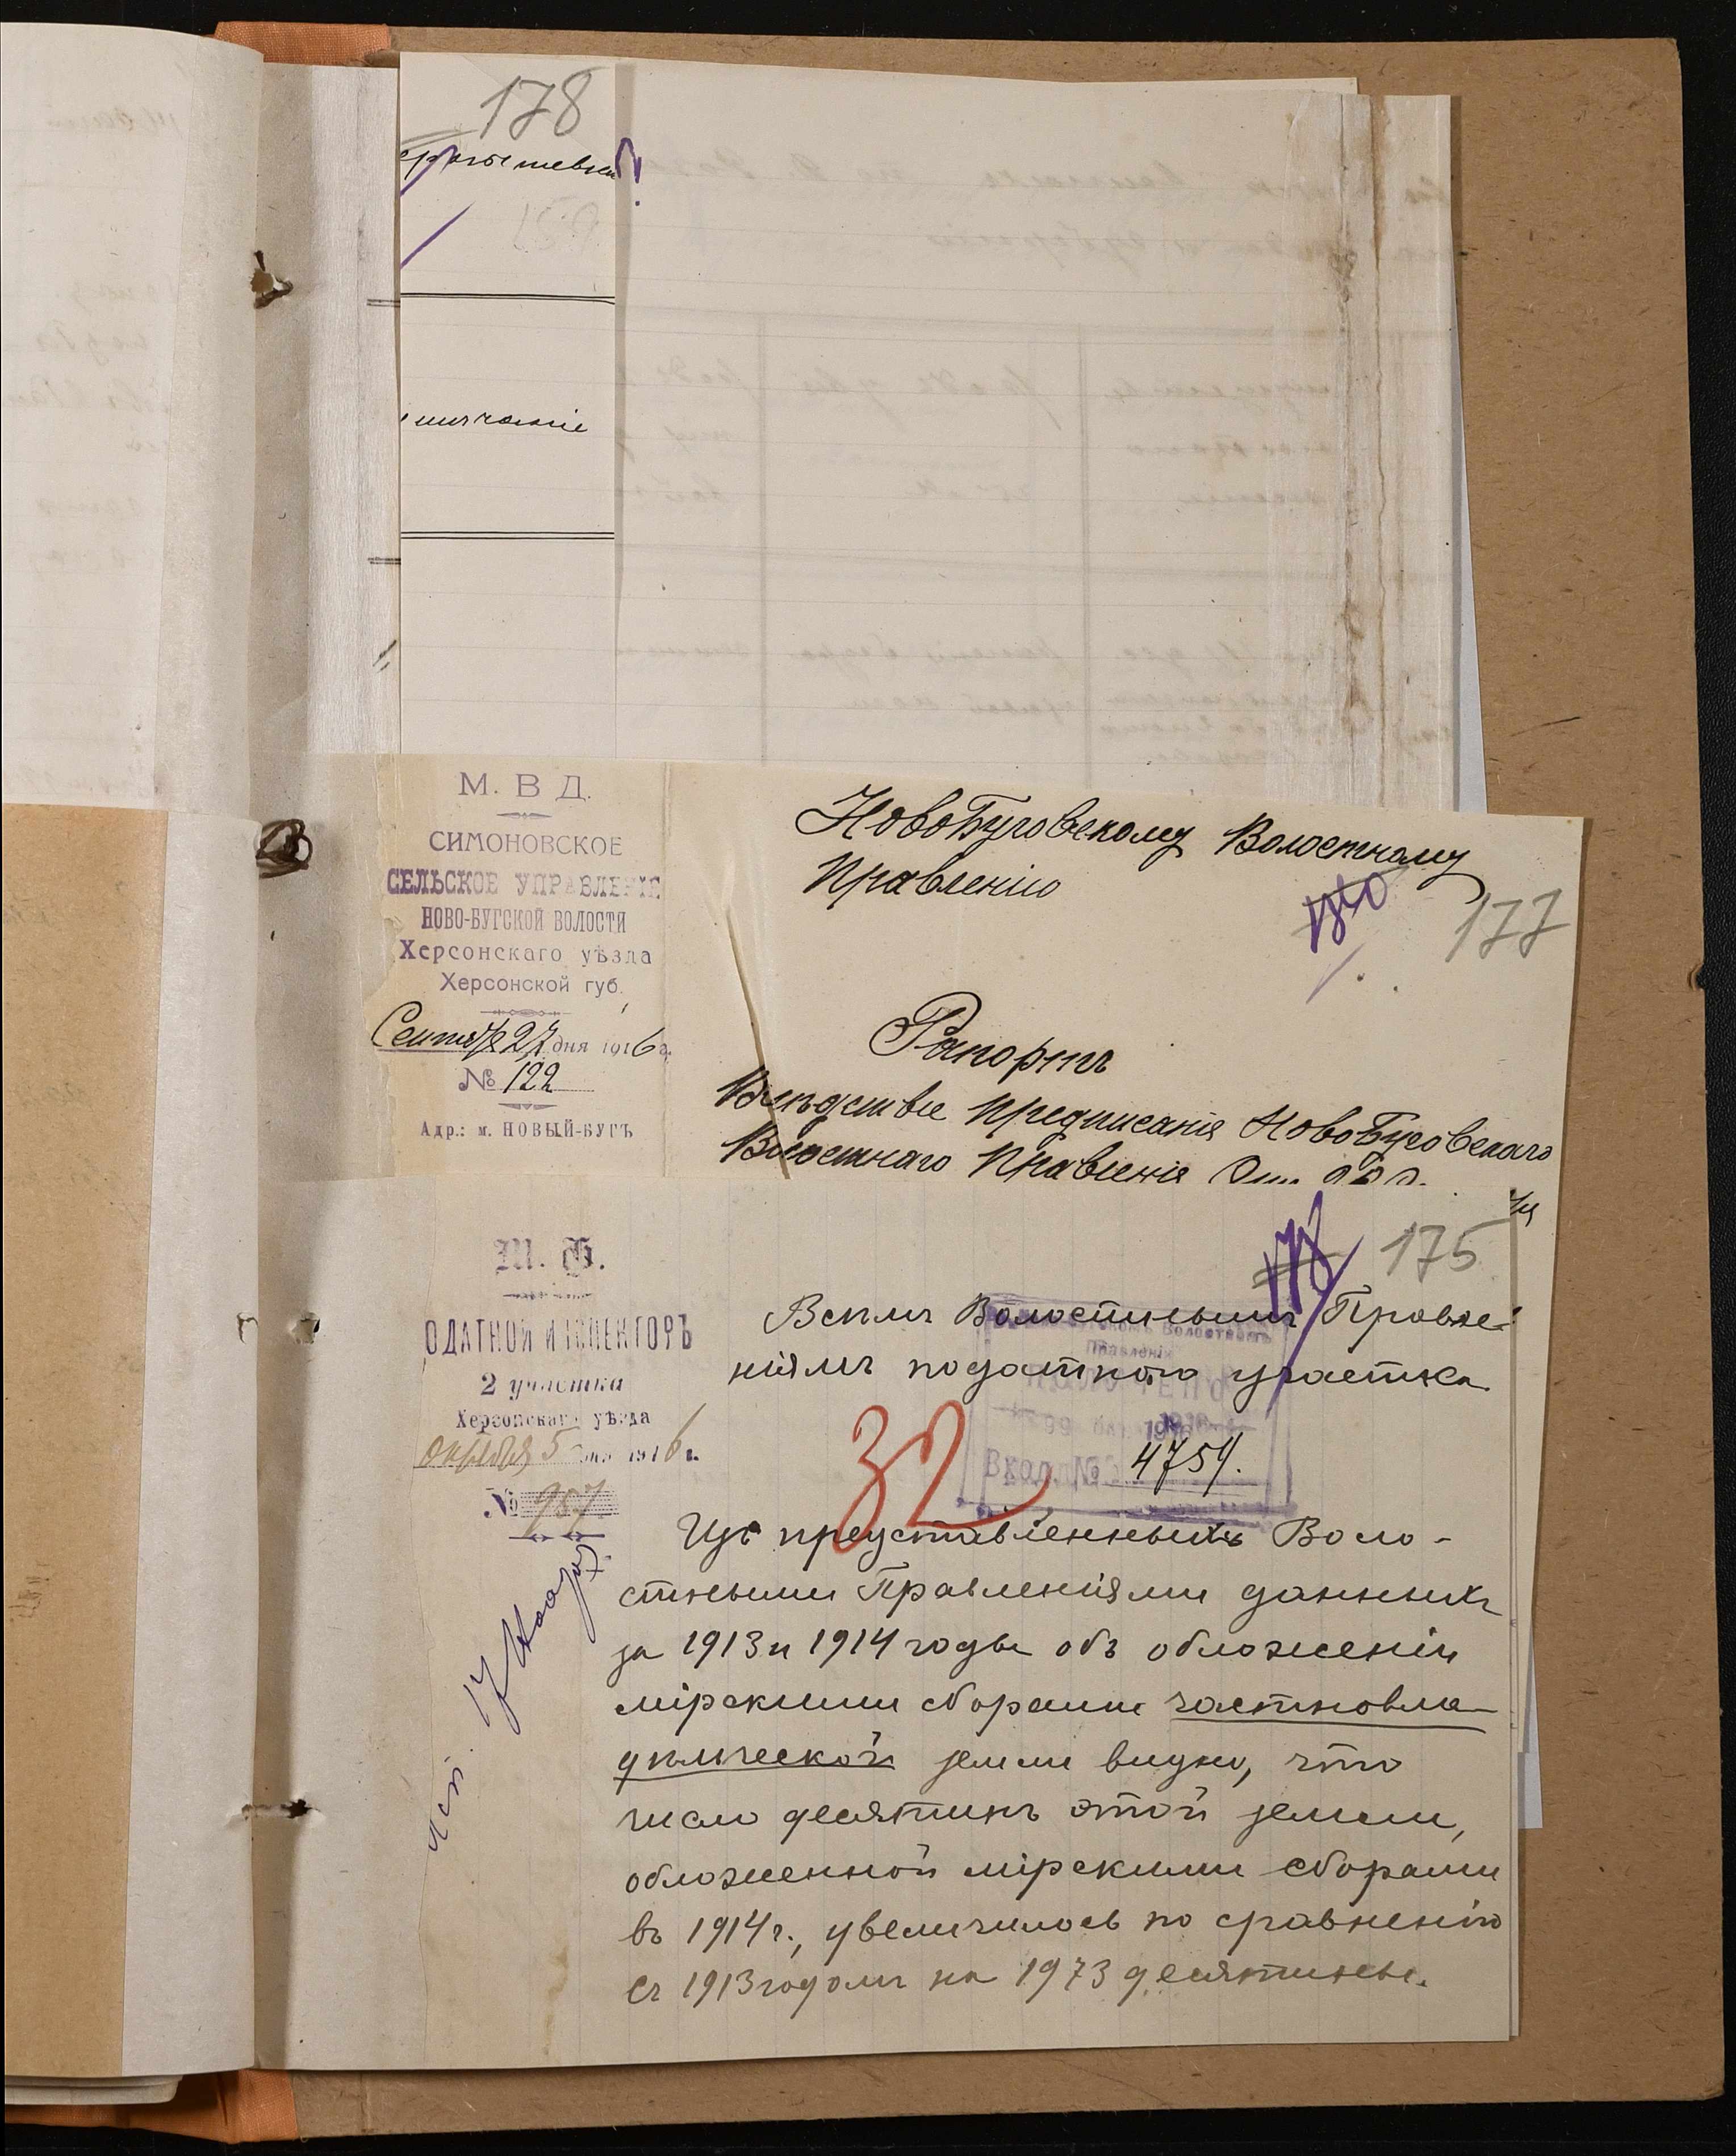 178
М. В. Д.
СИМОНОВСКОЕ
СЕЛЬСКОЕ УПРАВЛЕНІЕ
НОВО-БУГСКОЙ ВОЛОСТИ
Херсонскаго уѣзда
Херсонской губ.
27 дня 1916 г.
№ 122
Адр.: м. НОВЫЙ-БУГЪ
НовоБуговскому Волостному
Правленію
177
Рапортъ
Вслѣдствіе предписанія НовоБуговскаго
Волостнаго Правленія
М. Ф.
ОДАТНОЙ ИНСПЕКТОРЪ
2 участка
Херсонскаго уѣзда
октября 5 дня 1916 г.
№ 957
175
Всѣмъ Волостнымъ Правле-
ніямъ податного участка
32
Вход. № 4754.
Изъ представленныхъ Воло-
стными Правленіями данныхъ
за 1913 и 1914 годы объ обложеніи
мірскими сборами частновла-
дѣльческой земли видно, что
число десятинъ этой земли,
обложенной мірскими сборами
въ 1914 г., увеличилось по сравненію
съ 1913 годомъ на 1973 десятины.